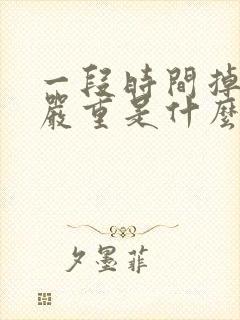 一段時間掉
嚴重是什麼
夕墨菲